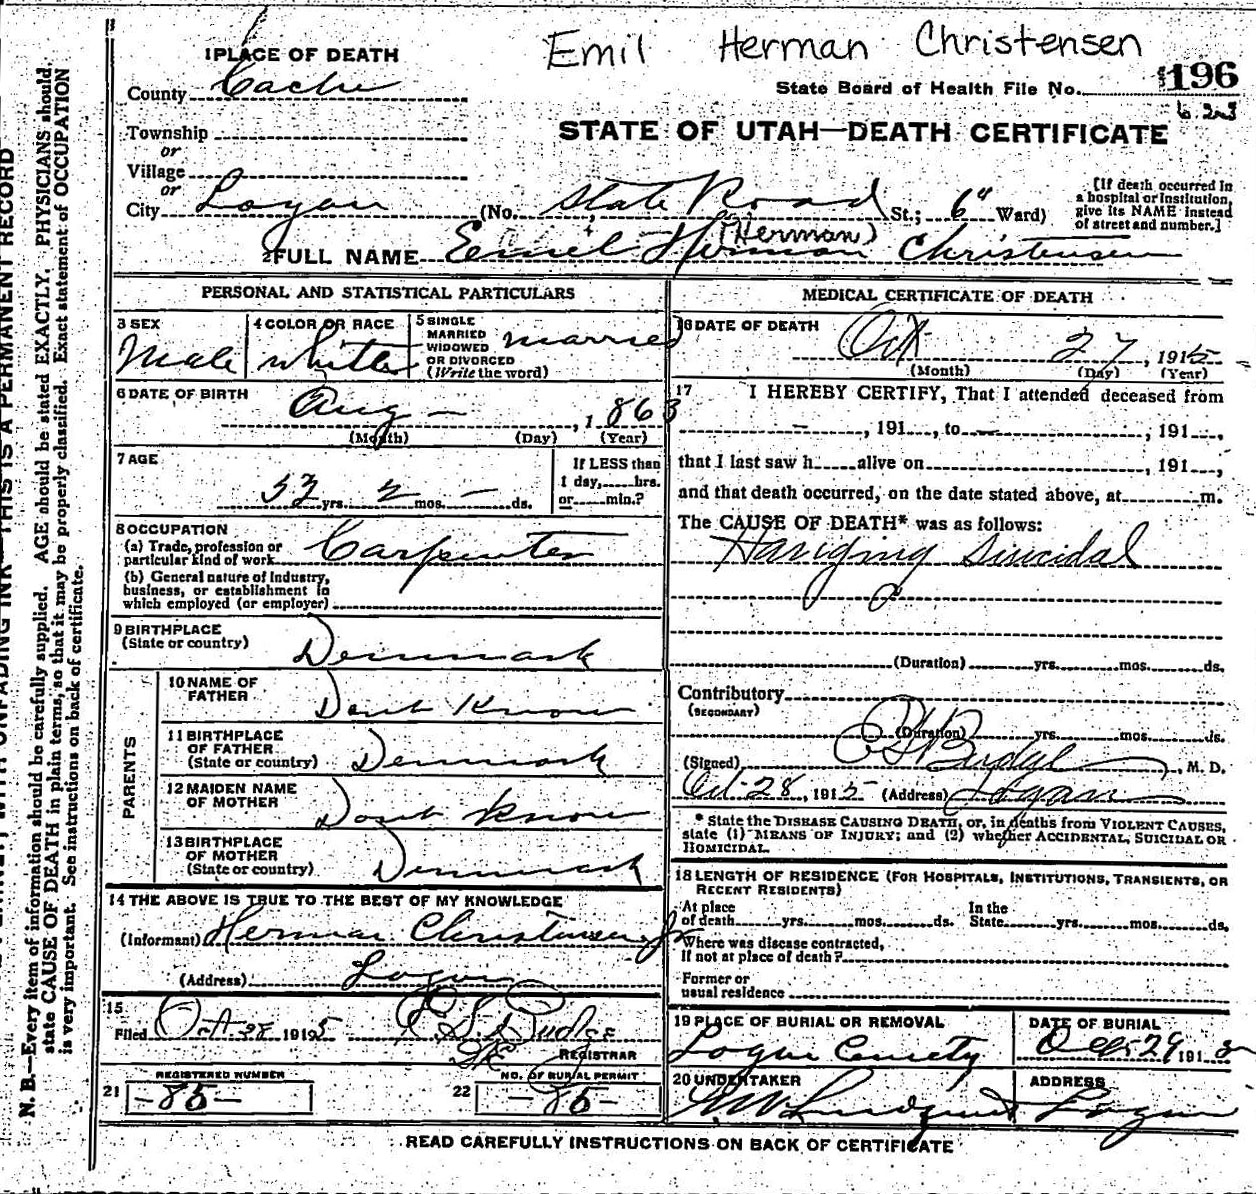 Emil Herman Christensen
1 PLACE OF DEATH
County Cache
State Board of Health File No. 196
Township
or
STATE OF UTAH—DEATH CERTIFICATE
Village
or
City Logan (No. State Road St.; 6" Ward)
[If death occurred in a hospital or institution, give its NAME instead of street and number.]
(Herman)
2 FULL NAME Emiel Herman Christensen
PERSONAL AND STATISTICAL PARTICULARS
3 SEX Male
4 COLOR OR RACE White
5 SINGLE MARRIED WIDOWED OR DIVORCED (Write the word) married
6 DATE OF BIRTH Aug — , 1863
(Month) (Day) (Year)
7 AGE 52 yrs. 2 mos. — ds.
If LESS than 1 day, hrs. or min.?
8 OCCUPATION
(a) Trade, profession or particular kind of work Carpenter
(b) General nature of industry, business, or establishment in which employed (or employer)
9 BIRTHPLACE (State or country) Denmark
PARENTS
10 NAME OF FATHER Dont Know
11 BIRTHPLACE OF FATHER (State or country) Denmark
12 MAIDEN NAME OF MOTHER Dont Know
13 BIRTHPLACE OF MOTHER (State or country) Denmark
14 THE ABOVE IS TRUE TO THE BEST OF MY KNOWLEDGE
(Informant) Herman Christensen Jr
(Address) Logan
15
Filed Oct 28 1915
REGISTRAR
REGISTERED NUMBER
21 —85—
NO. OF BURIAL PERMIT
22 —85—
MEDICAL CERTIFICATE OF DEATH
16 DATE OF DEATH Oct 27, 1915
(Month) (Day) (Year)
17 I HEREBY CERTIFY, That I attended deceased from
—, 191 , to —, 191 ,
that I last saw h alive on , 191 ,
and that death occurred, on the date stated above, at m.
The CAUSE OF DEATH* was as follows:
Hanging Suicidal
(Duration) yrs. mos. ds.
Contributory
(SECONDARY)
(Duration) yrs. mos. ds.
(Signed) Budge, M. D.
Oct-28, 1915 (Address) Logan
* State the DISEASE CAUSING DEATH, or, in deaths from VIOLENT CAUSES,
state (1) MEANS OF INJURY; and (2) whether ACCIDENTAL, SUICIDAL OR
HOMICIDAL.
18 LENGTH OF RESIDENCE (FOR HOSPITALS, INSTITUTIONS, TRANSIENTS, OR
RECENT RESIDENTS)
At place of death yrs. mos. ds. In the State yrs. mos. ds.
Where was disease contracted,
if not at place of death?
Former or
usual residence
19 PLACE OF BURIAL OR REMOVAL
DATE OF BURIAL
29 191
20 UNDERTAKER
ADDRESS
Lundquist Logan
READ CAREFULLY INSTRUCTIONS ON BACK OF CERTIFICATE
THIS IS A PERMANENT RECORD
N. B.—Every item of information should be carefully supplied. AGE should be stated EXACTLY. PHYSICIANS should
state CAUSE OF DEATH in plain terms, so that it may be properly classified. Exact statement of OCCUPATION
is very important. See instructions on back of certificate.